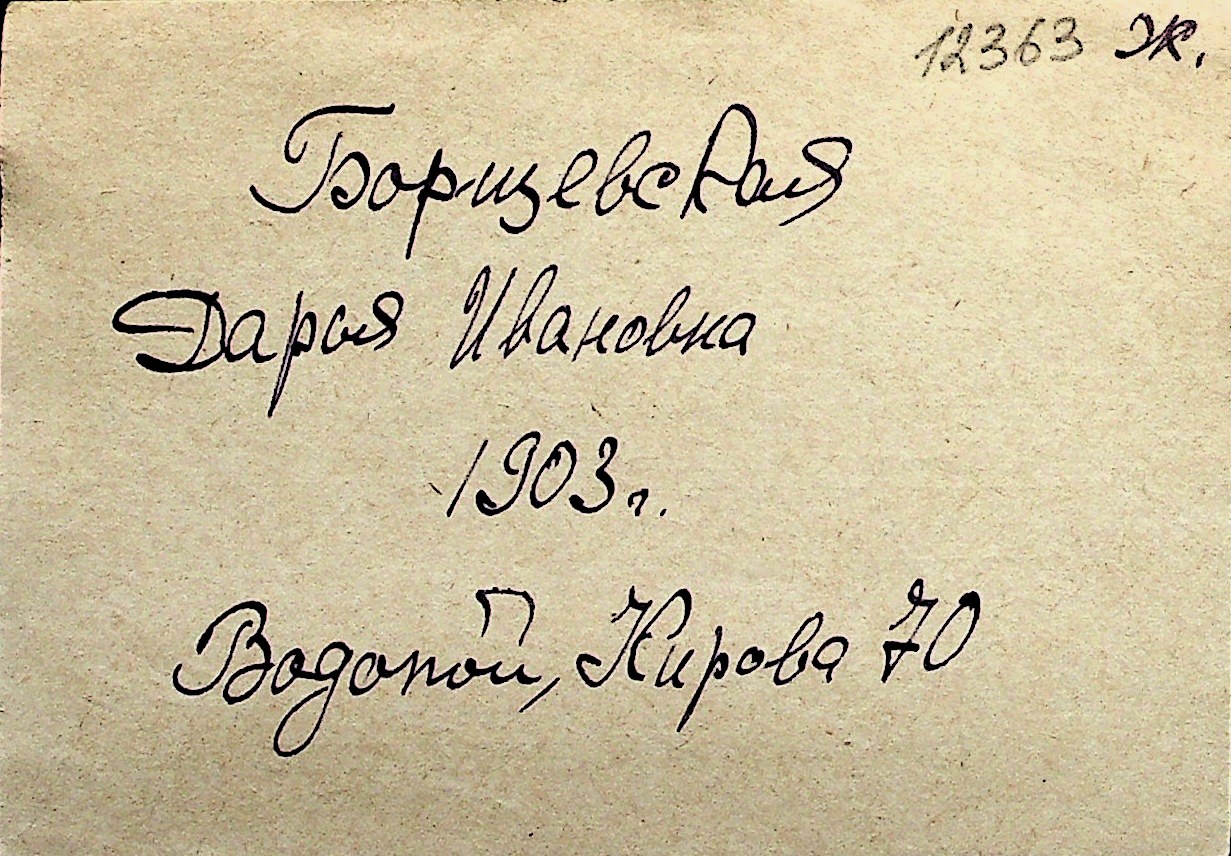 12363 Ж.
Борщевская
Дарья Ивановка
1903 г.
Водопой, Кирова 70